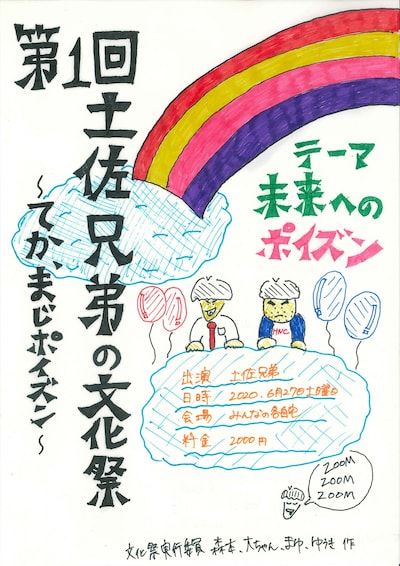 第1回土佐兄弟の文化祭
～てか、まじポイズン～
テーマ
未来への
ポイズン
HNC
出演 土佐兄弟
日時 2020.6月27日土曜日
会場 みんなの各自宅
料金 2000円
ZOOM
ZOOM
ZOOM
文化祭実行委員 森本、大ちゃん、まゆ、ゆうき 作